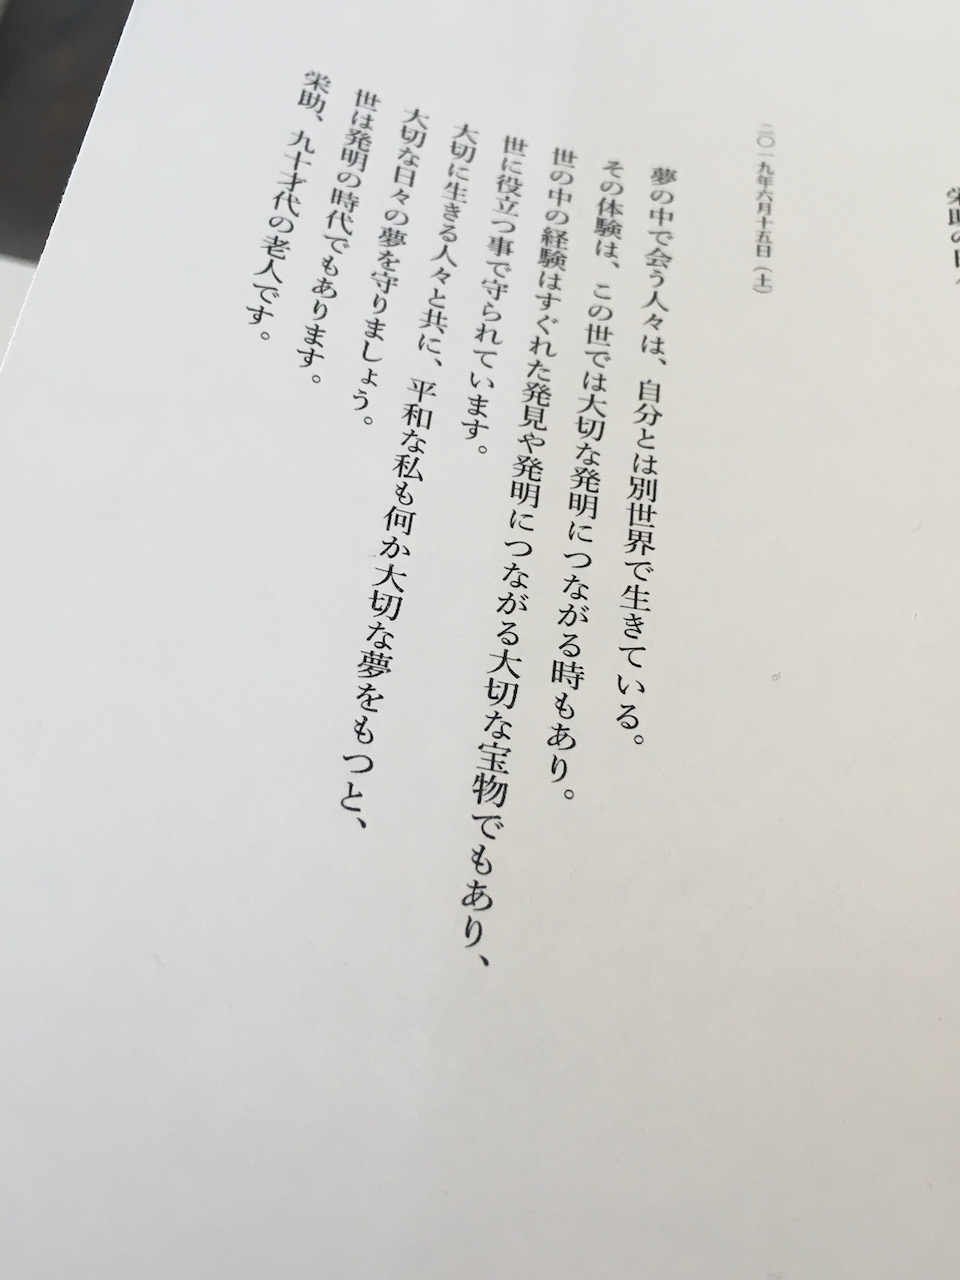 栄助の日々
二〇一九年六月十五日（土）
夢の中で会う人々は、自分とは別世界で生きている。
その体験は、この世では大切な発明につながる時もあり。
世の中の経験はすぐれた発見や発明につながる大切な宝物でもあり、
世に役立つ事で守られています。
大切に生きる人々と共に、平和な私も何か大切な夢をもつと、
大切な日々の夢を守りましょう。
世は発明の時代でもあります。
栄助、九十才代の老人です。